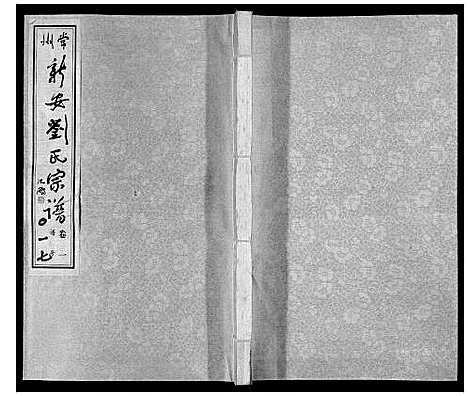 常州
新安劉氏宗譜
卷一
二〇一七